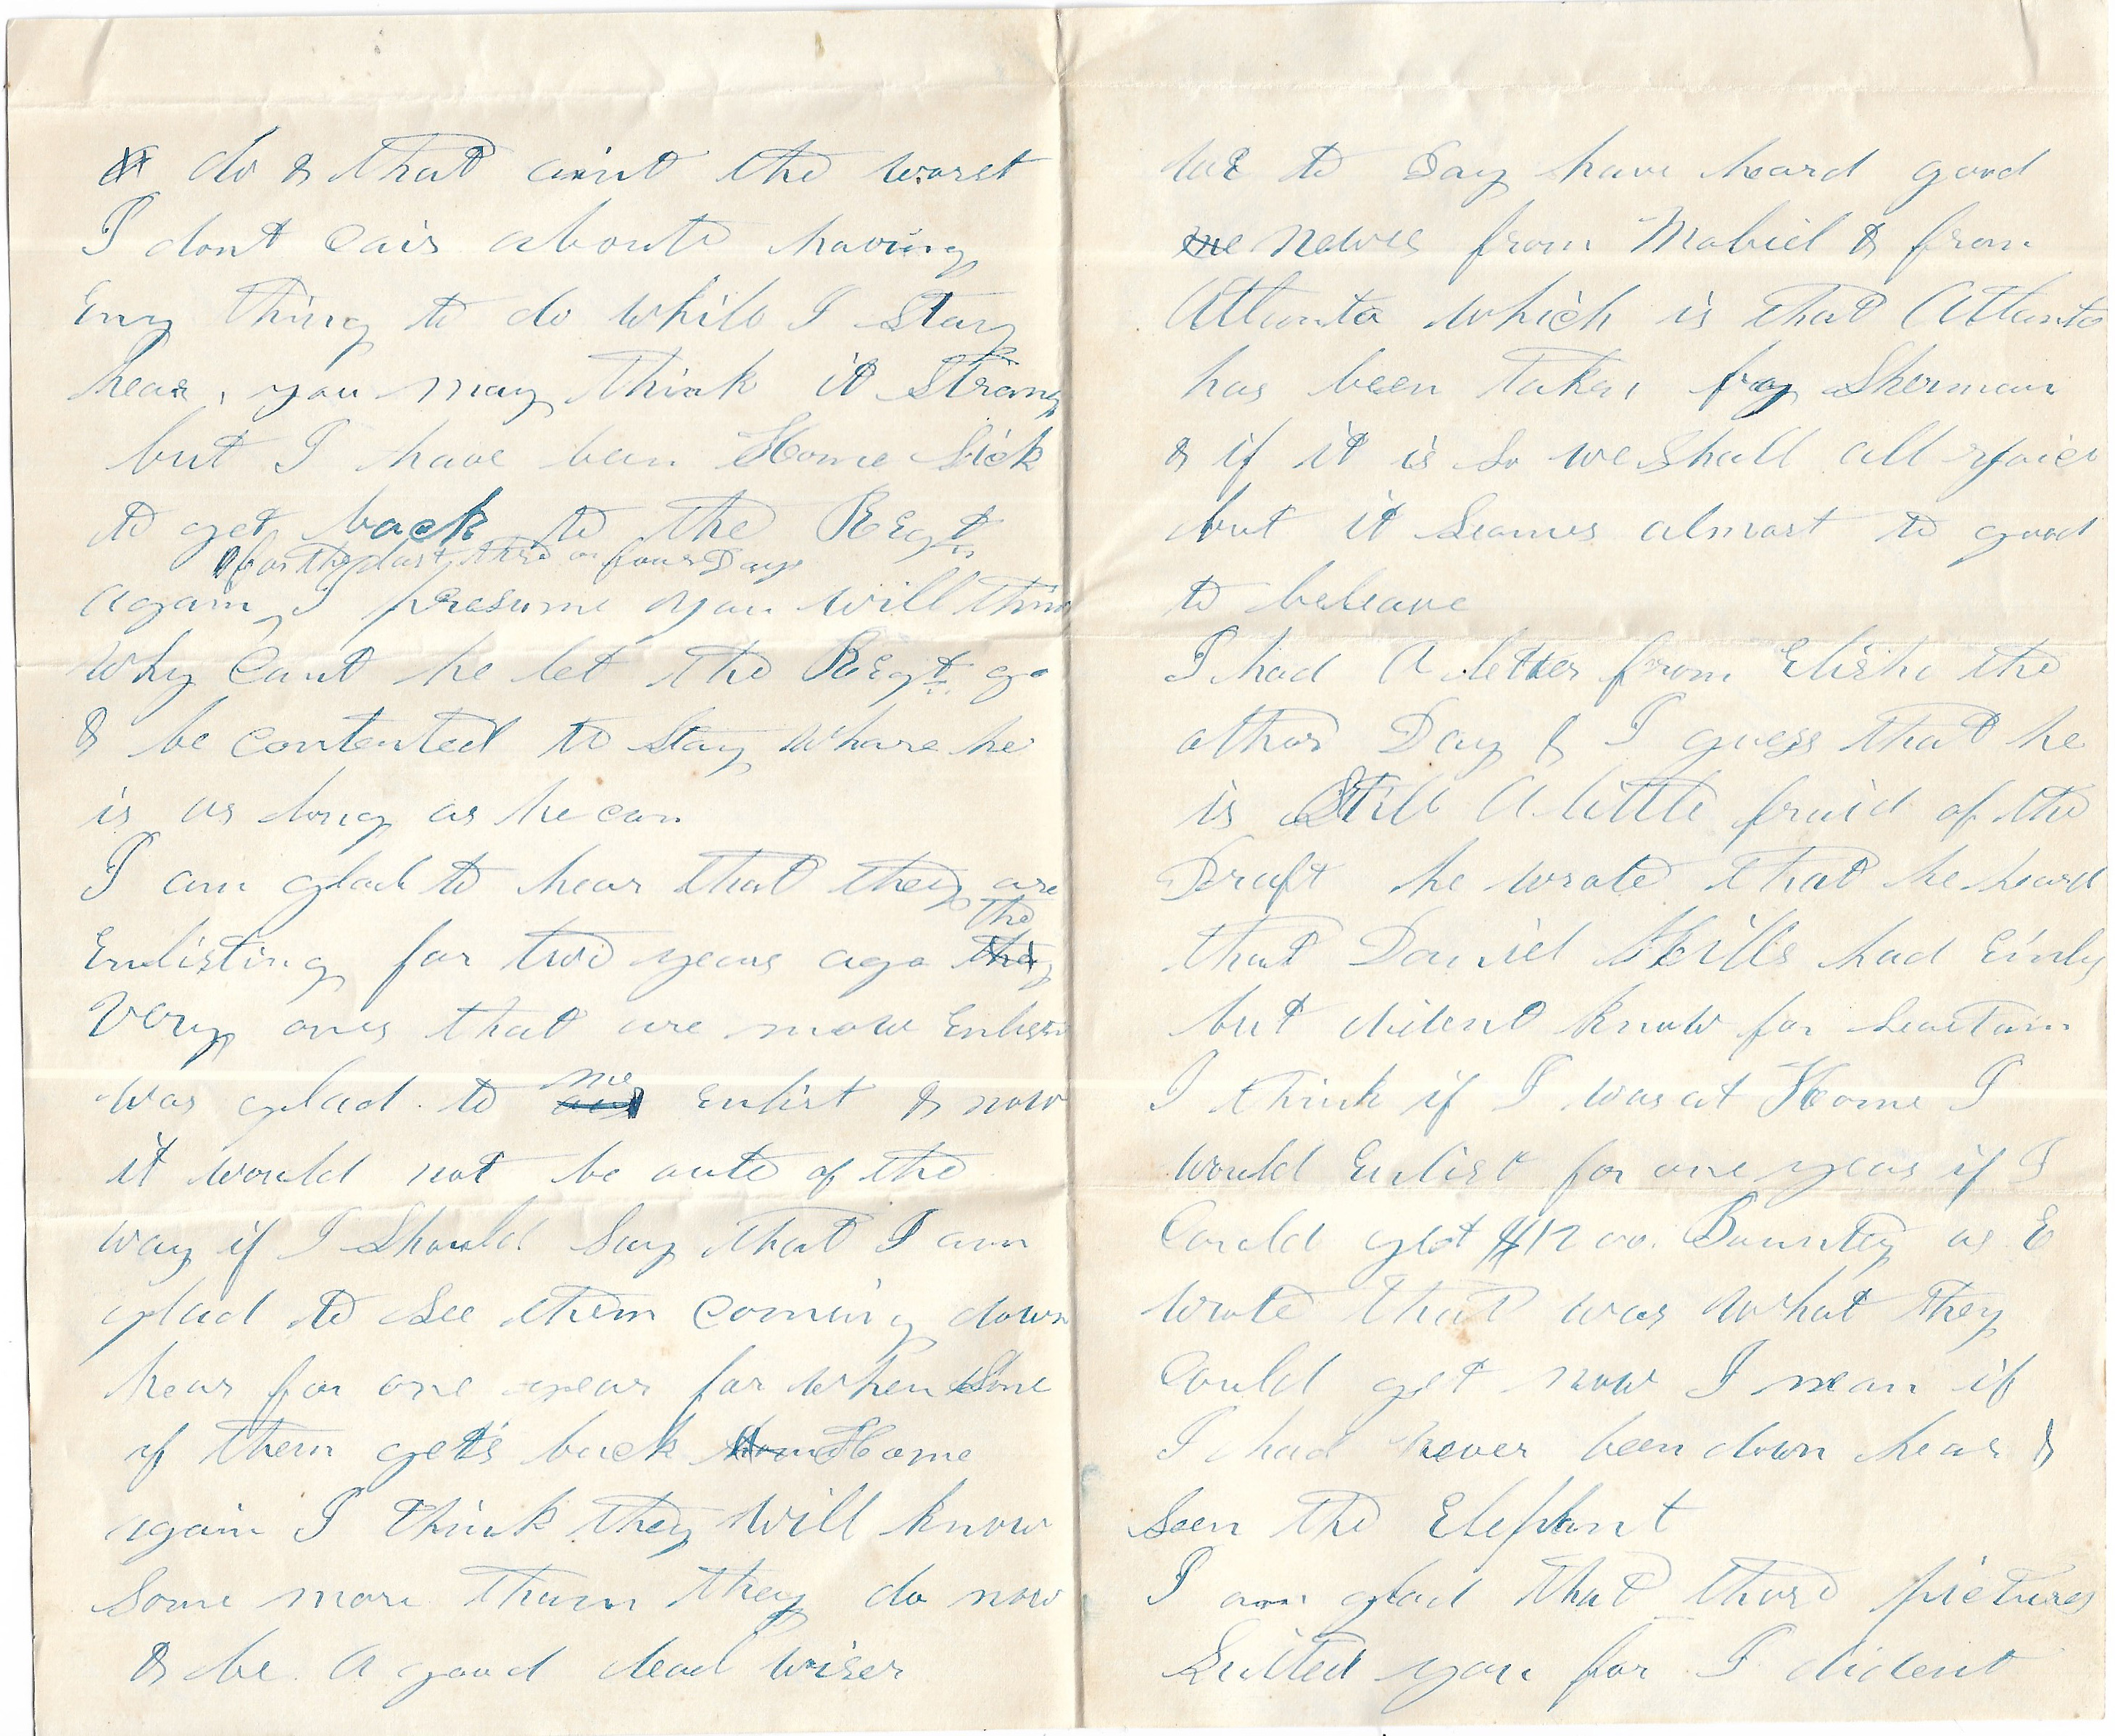 do & that aint the worst
I dont cair aboute having
Eny thing to do while I Stay
hear, you may think it Strang
but I have ben Home Sick
to get back to the Regt
for the last three or four Days
again, I presume you will think
why cant he let the Regt go
& be contented to Stay whare he
is as long as he can
I am glad to hear that they are
the
Enlisting for two years ago they
very ones that are now Enlisn
me
was glad to Enlist & now
it would not be oute of the
way if I Should Say that I am
glad to See them coming down
hear for one year for when Some
of them gets back Home
again I think they will know
Some more than they do now
& be a good deal wiser
we to Day have heard good
newes from Mobiel & from
Atlanta which is that Atlanta
has been taken by Sherman
& if it is So we Shall all rjoice
but it Seames almost to good
to beleave
I had a letter from Elisha the
other Day & I guess that he
is Still a little fraid of the
Draft he wrote that he heard
that Daniel had Einly
but dident know for Seartain
I think if I was at Home I
would Enlist for one year if I
Could get $1200. Bounty as E
wrote that was what they
Could get now I mean if
I had never been down hear &
Seen the Elephant
I am glad that those pictures
Suited you for I dident